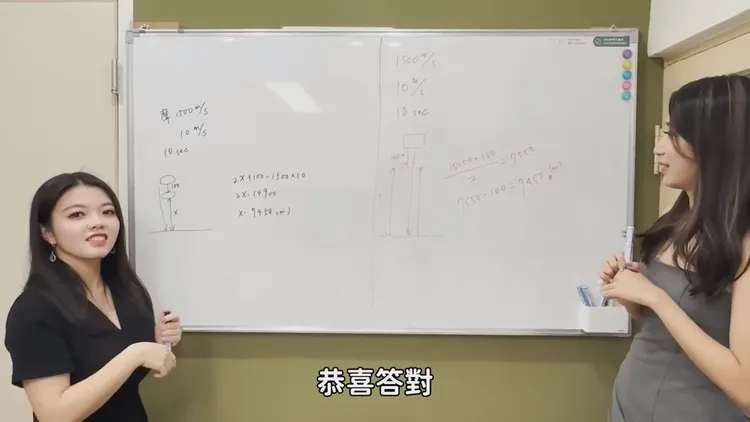 聲 1500 m/s
10 m/s
10 sec
100
x
2x+100=1500×10
2x=14900
x=7450 (m)
1500 m/s
10 m/s
10 sec
100
15000+100
2
=7550
7550-100=7450 (m)
恭喜答對